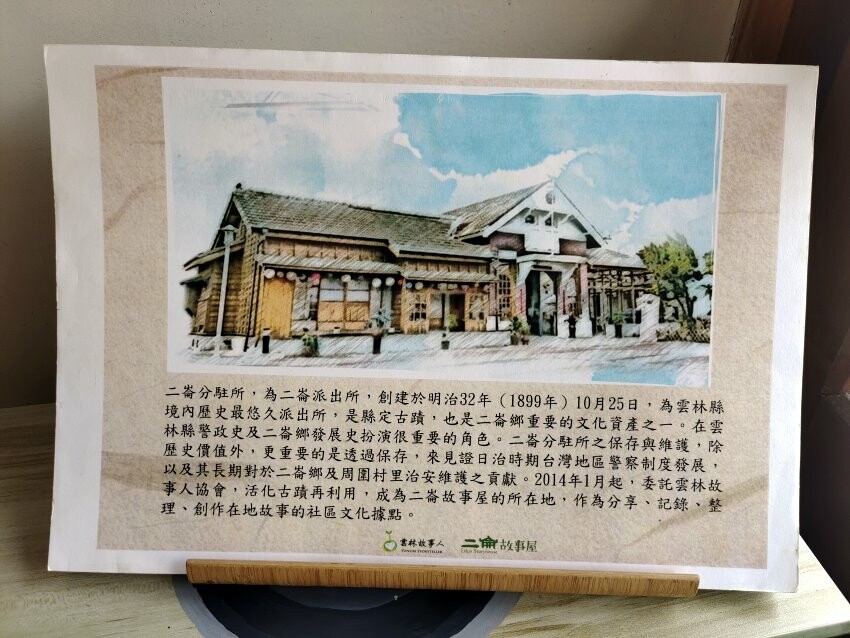 二崙分駐所，為二崙派出所，創建於明治32年（1899年）10月25日，為雲林縣
境內歷史最悠久派出所，是縣定古蹟，也是二崙鄉重要的文化資產之一。在雲
林縣警政史及二崙鄉發展史扮演很重要的角色。二崙分駐所之保存與維護，除
歷史價值外，更重要的是透過保存，來見證日治時期台灣地區警察制度發展，
以及其長期對於二崙鄉及周圍村里治安維護之貢獻。2014年1月起，委託雲林故
事人協會，活化古蹟再利用，成為二崙故事屋的所在地，作為分享、記錄、整
理、創作在地故事的社區文化據點。
雲林故事人 二崙故事屋
YUNLIN STORYTELLER